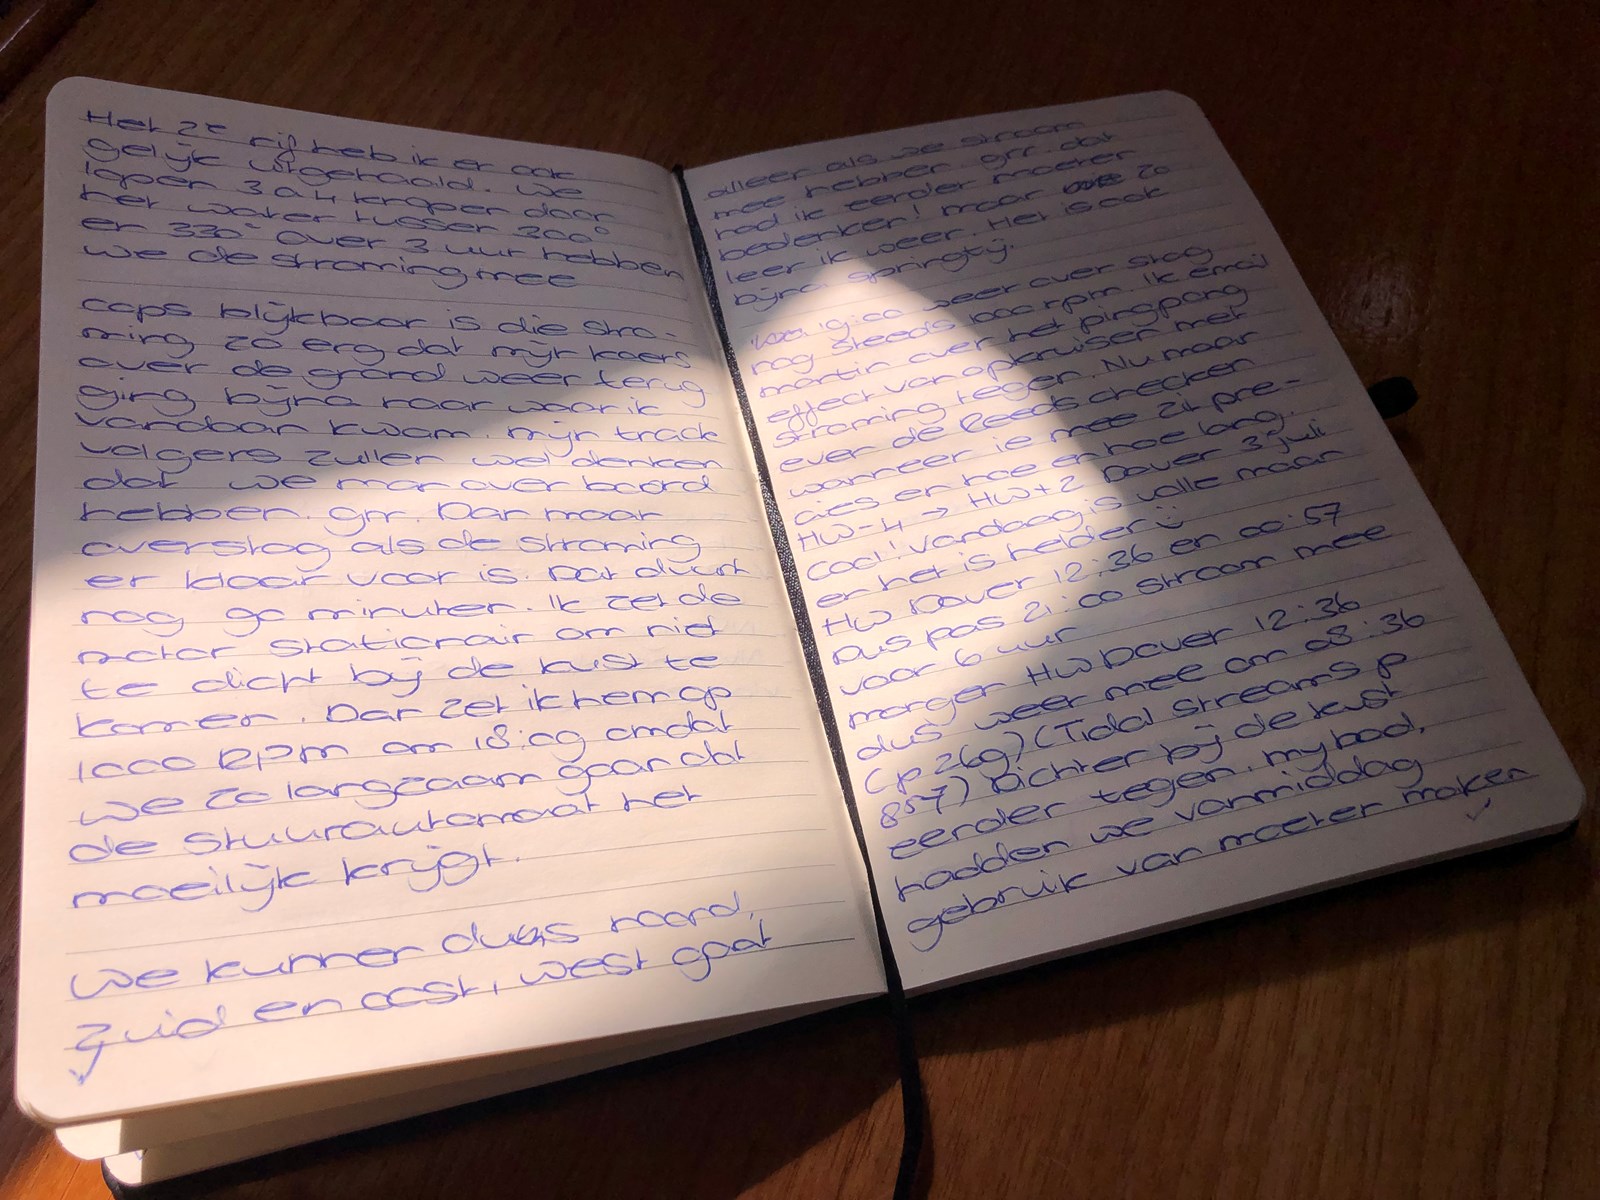 Het 2e rif heb ik er ook
gelijk uitgehaald. We
lopen 3 a 4 knopen door
het water tussen 300°
en 330° over 3 uur hebben
we de stroming mee
oops blijkbaar is die stro-
ming zo erg dat mijn koers
over de grond weer terug
ging bijna naar waar ik
vandaan kwam. mijn track
volgers zullen wel denken
dat we man over boord
hebben. grr. Dan maar
overstag als de stroming
er klaar voor is. Dat duurt
nog 90 minuten. Ik zet de
motor stationair om niet
te dicht bij de kust te
komen. Dan zet ik hem op
1000 RPM om 18:09 omdat
we zo langzaam gaan dat
de stuurautomaat het
moeilijk krijgt.
We kunnen dus noord,
zuid en oost, west gaat
alleen als we stroom
mee hebben grr. dat
had ik eerder moeten
bedenken! maar zo
leer ik weer. Het is ook
bijna springtij.
19:00 weer over stag
nog steeds 1000 rpm. Ik email
martin over het pingpong
effect van opkruisen met
stroming tegen. Nu maar
even de Reeds checken
wanneer ie mee zit pre-
cies en hoe en hoe lang.
HW-4 → HW+2 Dover 3 juli
cool! Vandaag is volle maan
en het is helder ☺
HW Dover 12:36 en 00:57
Dus pas 21:00 stroom mee
voor 6 uur
morgen HW Dover 12:36
dus weer mee om 08:36
(p 269) (Tidal streams p
857) Dichter bij de kust
eerder tegen. my bad,
hadden we vanmiddag
gebruik van moeten maken